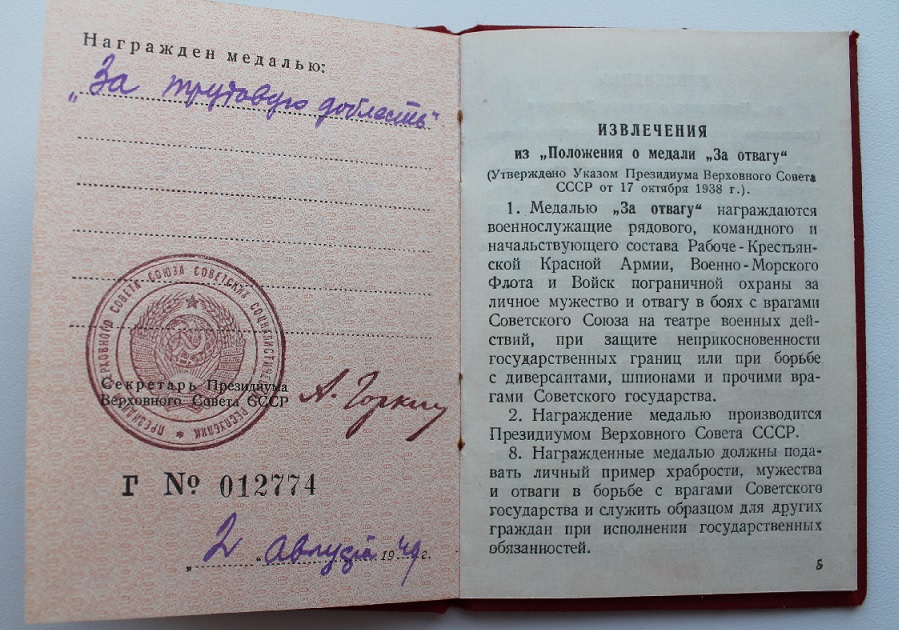 Награжден медалью:
„За трудовую доблесть“
ПРЕЗИДИУМ ВЕРХОВНОГО СОВЕТА СОЮЗА СОВЕТСКИХ СОЦИАЛИСТИЧ. РЕСПУБЛИК
Секретарь Президиума
Верховного Совета СССР А. Горкин
Г № 012774
„2“ августа 1949 г.
ИЗВЛЕЧЕНИЯ
из „Положения о медали „За отвагу“
(Утверждено Указом Президиума Верховного Совета
СССР от 17 октября 1938 г.).
1. Медалью „За отвагу“ награждаются
военнослужащие рядового, командного и
начальствующего состава Рабоче-Крестьян-
ской Красной Армии, Военно-Морского
Флота и Войск пограничной охраны за
личное мужество и отвагу в боях с врагами
Советского Союза на театре военных дей-
ствий, при защите неприкосновенности
государственных границ или при борьбе
с диверсантами, шпионами и прочими вра-
гами Советского государства.
2. Награждение медалью производится
Президиумом Верховного Совета СССР.
8. Награжденные медалью должны пода-
вать личный пример храбрости, мужества
и отваги в борьбе с врагами Советского
государства и служить образцом для других
граждан при исполнении государственных
обязанностей.
5